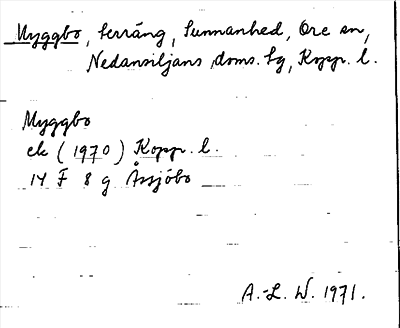 Myggbo, terräng, Sunnanhed, Ore sn,
Nedansiljans doms. sg, Kopp. l.
Myggbo
ek (1970) Kopp. l.
14 F 8 g Åssjöbo
A.-L. W. 1971.